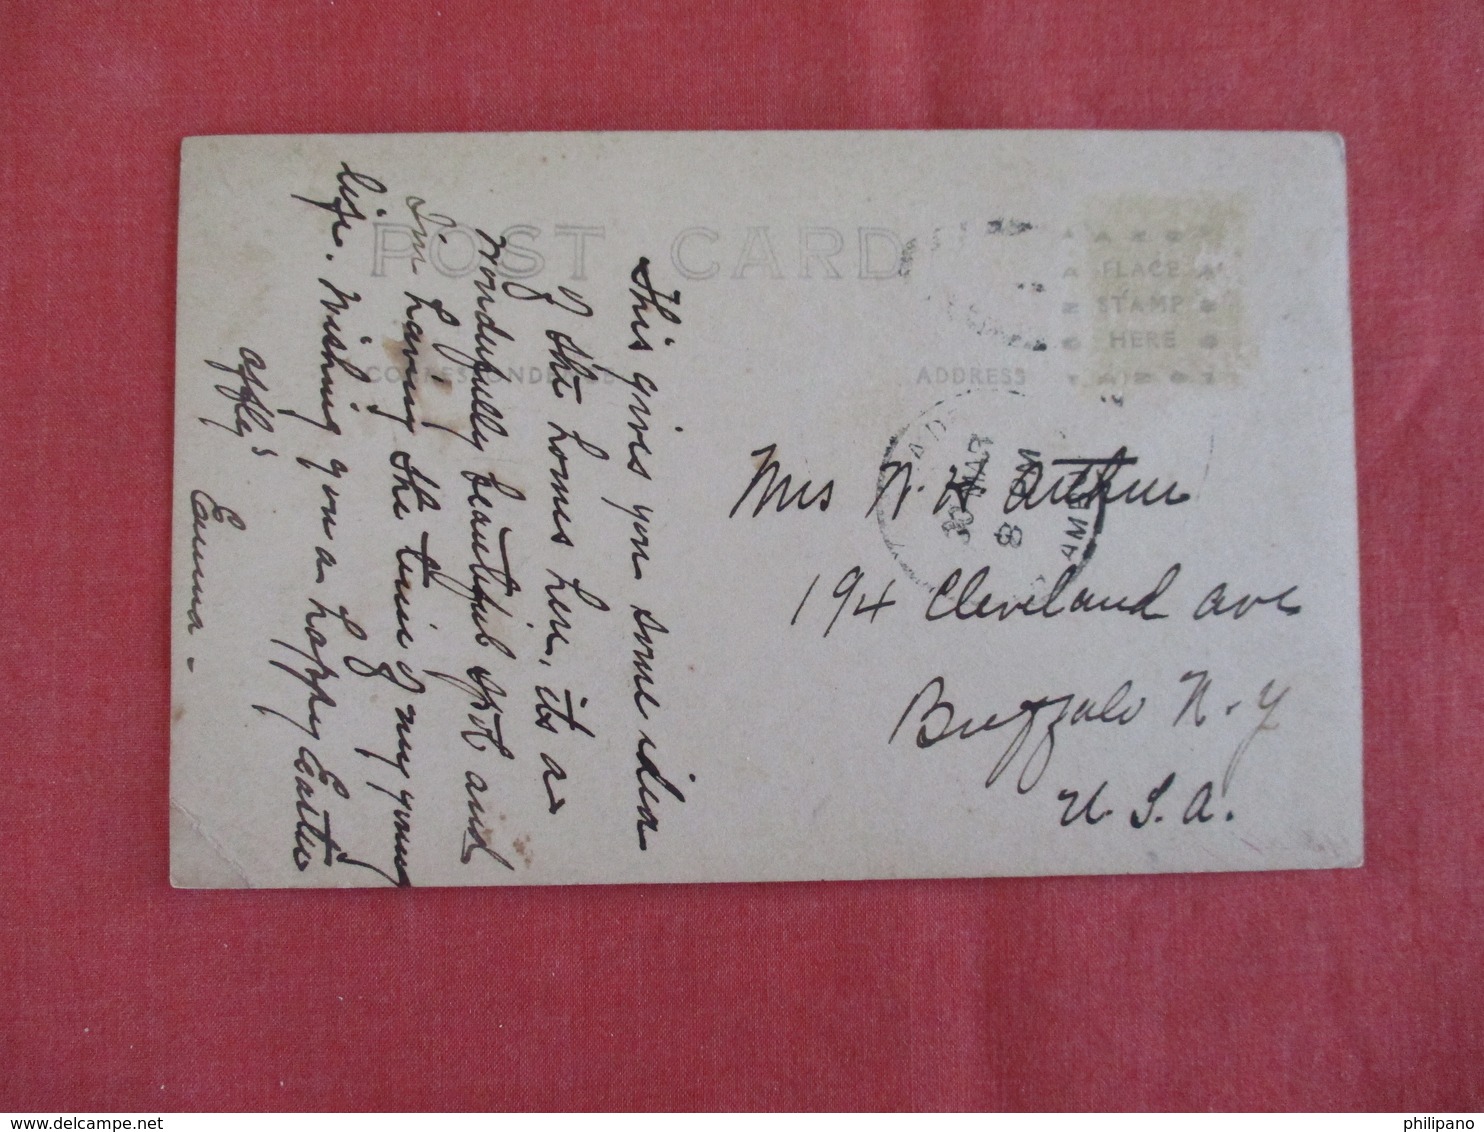 POST CARD
CORRESPONDENCE
ADDRESS
PLACE
STAMP
HERE
This gives you some idea
of the homes here, its a
wonderfully beautiful spot and
I'm having the time of my young
life. Wishing you a happy Easter
affly's
Emma -
30 MAR
8 PM
Mrs W. H Arthur
194 Cleveland ave
Buffalo N. Y
U. S. A.
philipano
www.delcampe.net